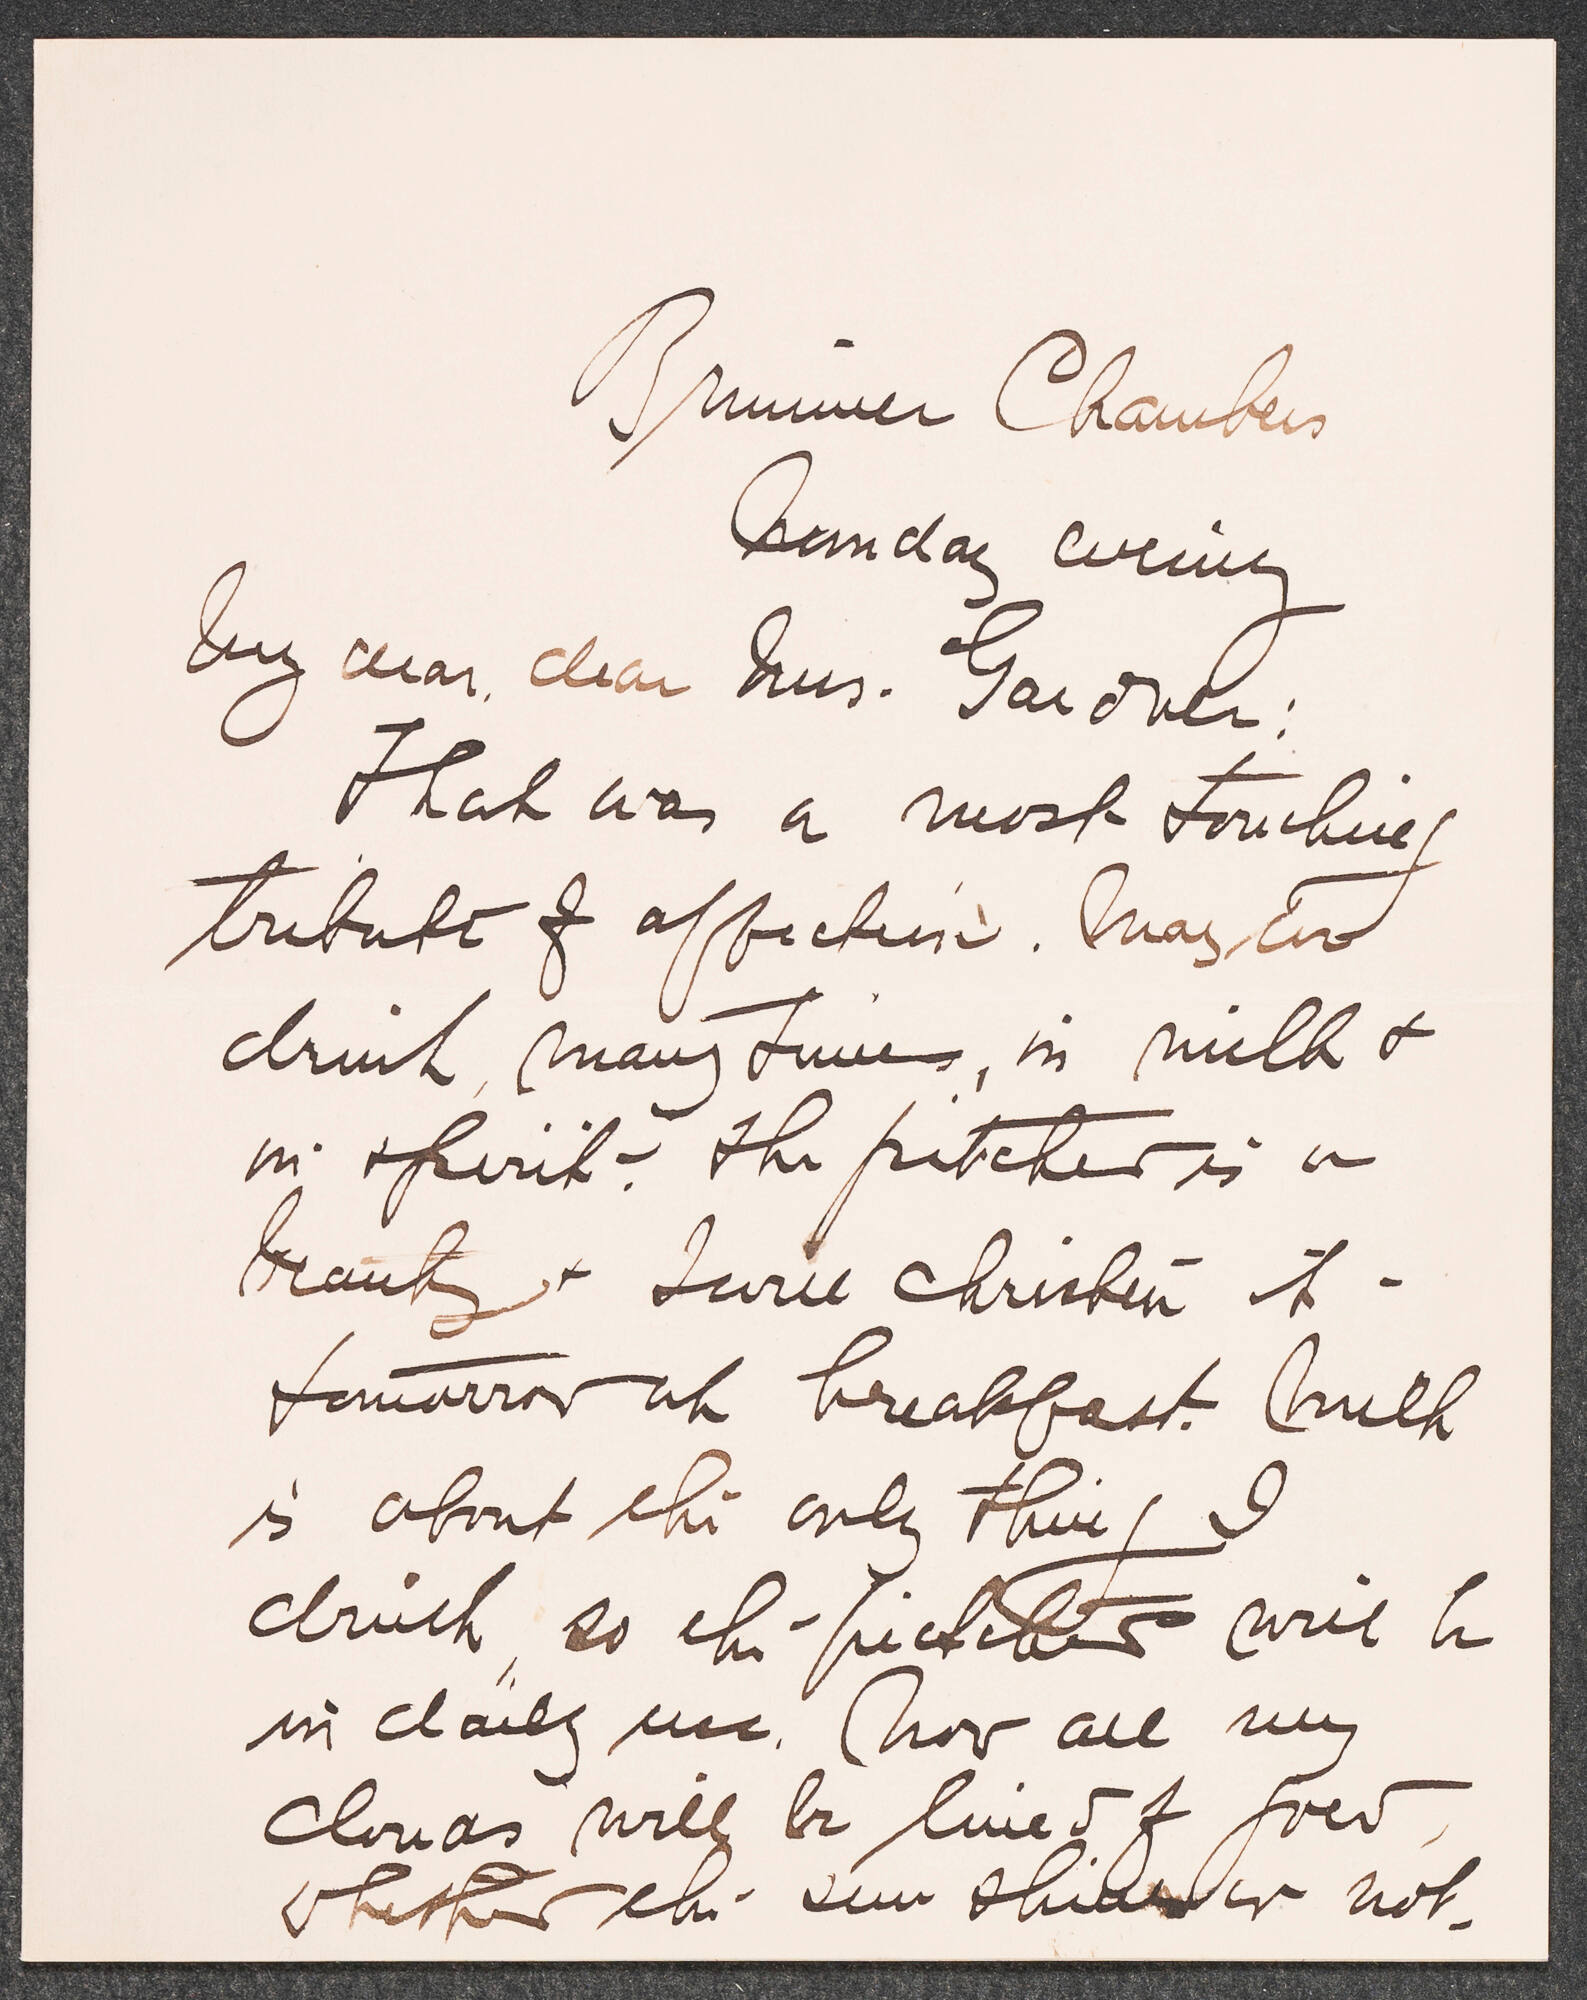 Brimmer Chambers
Monday evening
My dear, dear Mrs. Gardner:
That was a most touching
tribute of affection. May we
drink, many times, in milk &
in spirit! The pitcher is a
beauty & I will christen it -
tomorrow at breakfast. Milk
is about the only thing I
drink, so the pitcher will be
in daily use. Now all my
clouds will be lined of gold,
whether the sun shines or not.